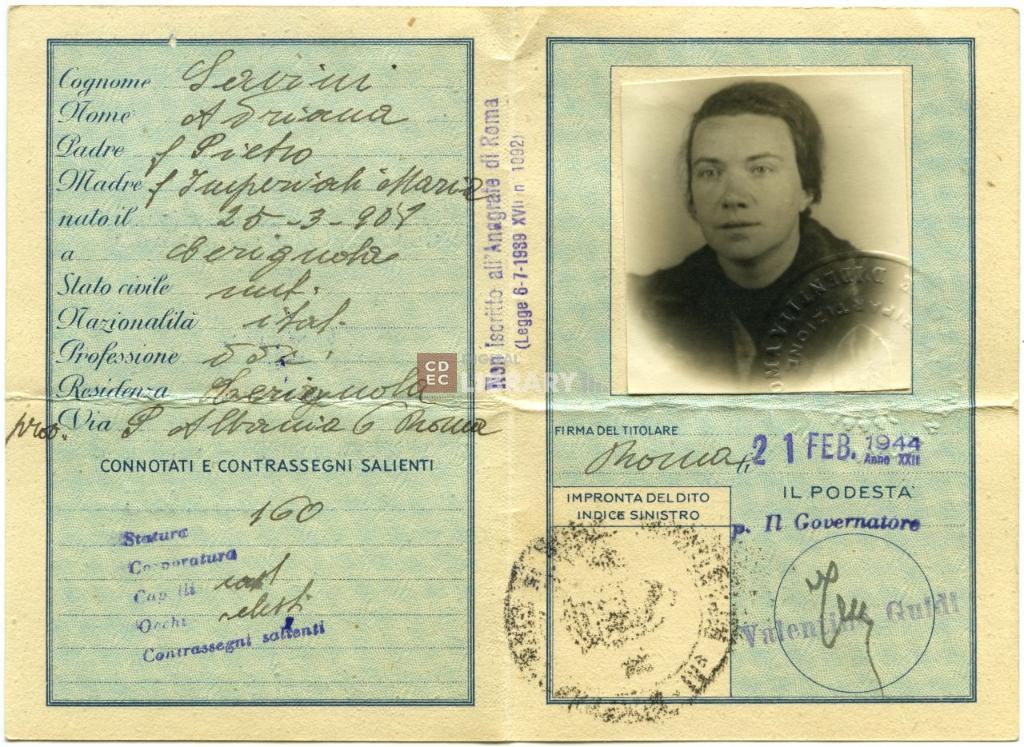 Cognome Savini
Nome Adriana
Padre f Pietro
Madre f Imperiali Maria
nato il 25-3-909
a Cerignola
Stato civile nub.
Nazionalità ital.
Professione
Residenza Cerignola
Via P Albania 6 Roma
CONNOTATI E CONTRASSEGNI SALIENTI
Statura 160
Corporatura
Capelli cast
Occhi celesti
Contrassegni salienti
Non Iscritto all'Anagrafe di Roma
(Legge 6-7-1939 XVII n 1092)
CDEC DIGITAL LIBRARY
RIPARTIZIONE
FIRMA DEL TITOLARE
Roma, 21 FEB. 1944
Anno XXII
IMPRONTA DEL DITO
INDICE SINISTRO
IL PODESTÀ
p. Il Governatore
Valentino Guidi